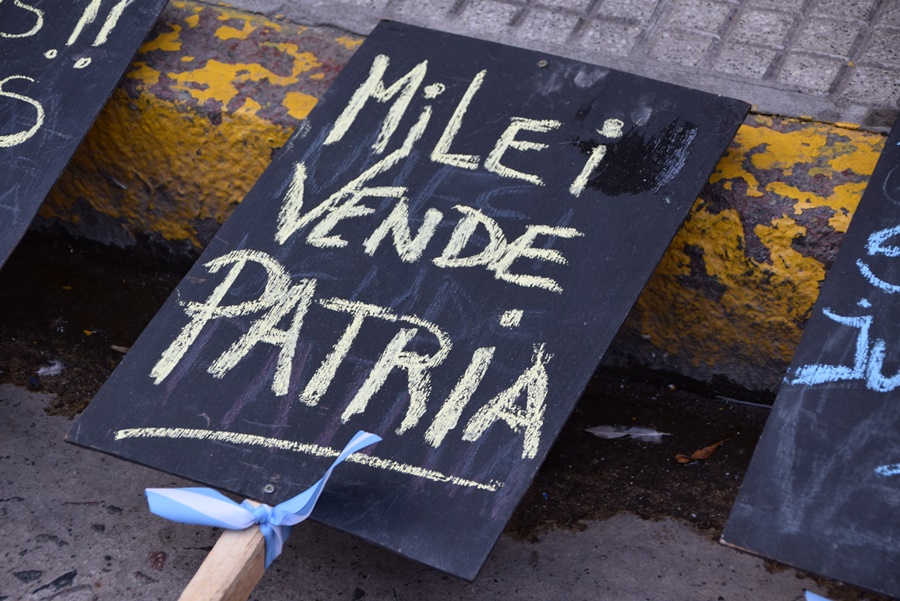 MiLEi
VENDE
PATRIA